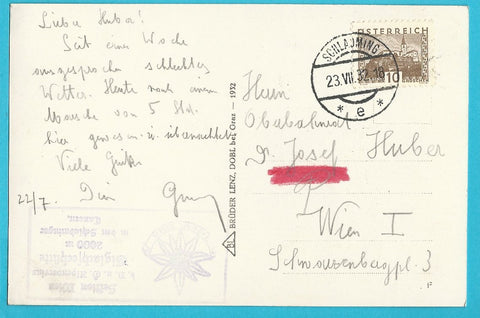 Liebe Huber!
Seit einer Woche
ausgesprochen schlechtes
Wetter. Heute nach einem
Marsche von 5 Std.
hier gewesen u. übernachtet
Viele Grüße
22/7.
ÖSTERREICH
10
SCHLADMING
23.VII.32.10
* 1e *
Herrn
Dr. Josef Huber
Wien I
Schwarzenbergpl. 3
BL BRÜDER LENZ, DOBL bei Graz — 1932
Sektion Wien
2000 m
in den Schladminger
Tauern.